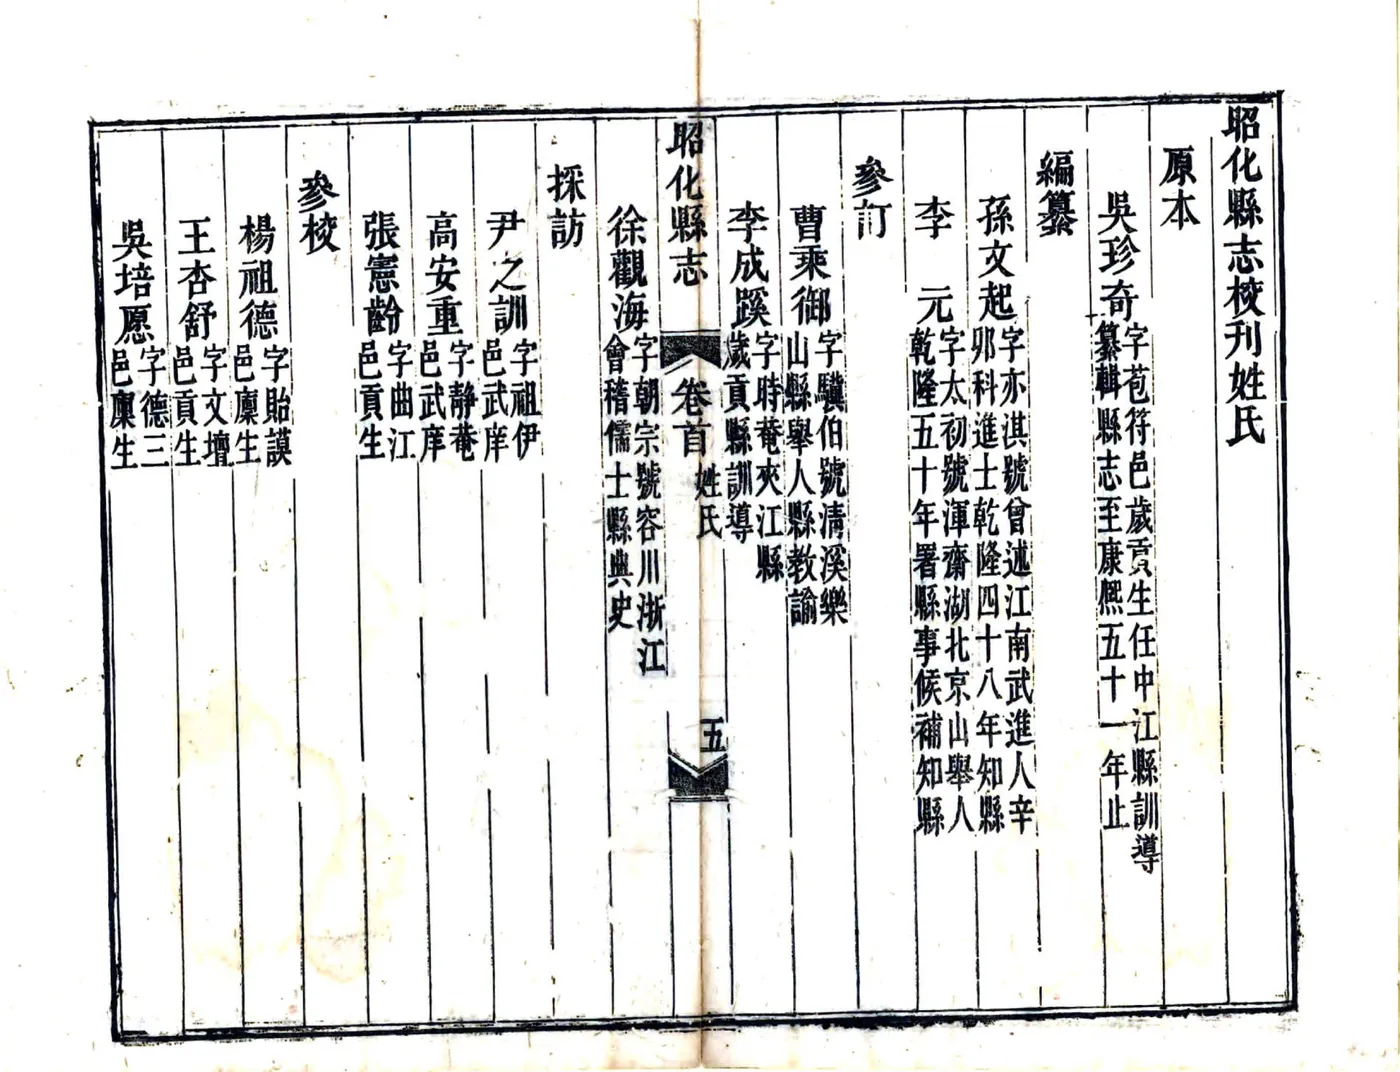 昭化縣志校刊姓氏
原本
吳珍奇
字苞符邑歲貢生任中江縣訓導
纂輯縣志至康熙五十一年止
編纂
孫文起
字亦淇號曾述江南武進人辛
卯科進士乾隆四十八年知縣
李元
字太初號渾齋湖北京山舉人
乾隆五十年署縣事候補知縣
參訂
曹乘御
字驥伯號淸溪樂
山縣舉人縣教諭
李成蹊
字時菴夾江縣
歲貢縣訓導
昭化縣志
卷首
姓氏
五
徐觀海
字朝宗號容川浙江
會稽儒士縣典史
採訪
尹之訓
字祖伊
邑武庠
高安重
字靜菴
邑武庠
張憲齡
字曲江
邑貢生
參校
楊祖德
字貽謨
邑廩生
王杏舒
字文壇
邑貢生
吳培愿
字德三
邑廩生